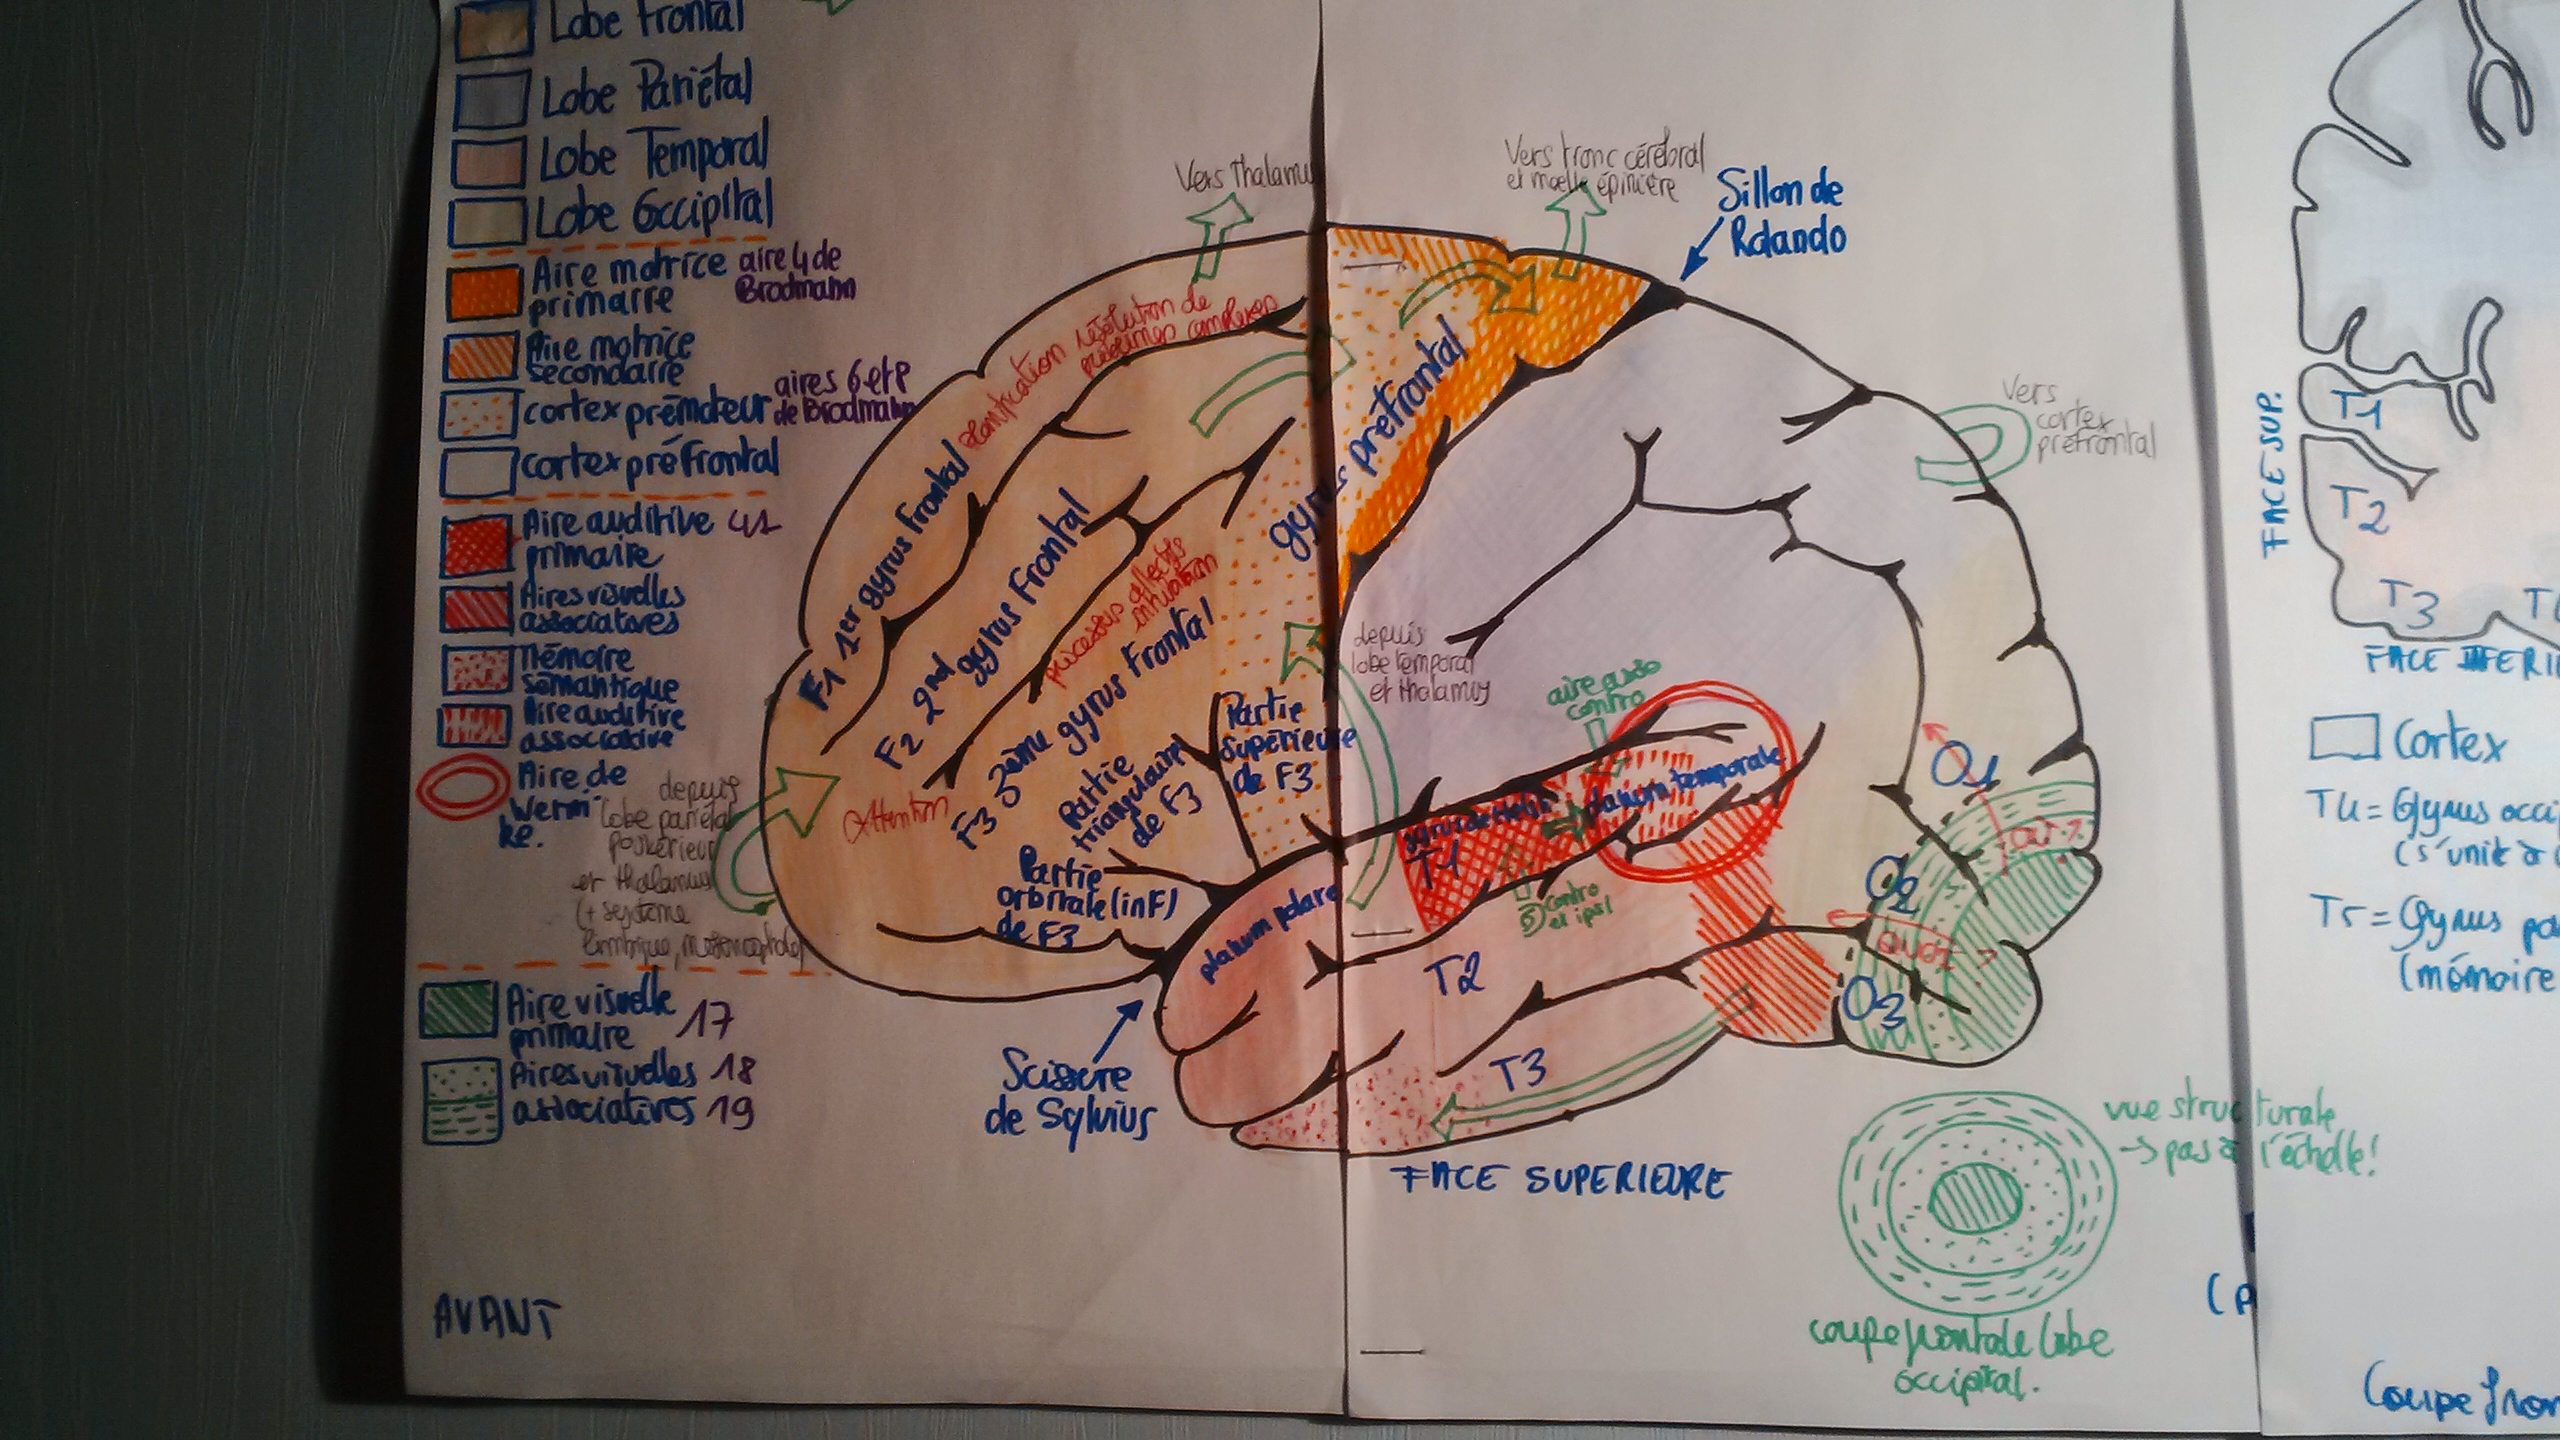 Lobe Frontal
Lobe Pariétal
Lobe Temporal
Lobe Occipital
Aire motrice
primaire
aire 4 de
Brodmann
Aire motrice
secondaire
cortex prémoteur
aires 6 et 8
de Brodmann
cortex préfrontal
Aire auditive 41
primaire
Aires visuelles
associatives
Mémoire
sémantique
Aire auditive
associative
Aire de
Werni-
ke.
depuis
lobe pariétal
postérieur
et thalamus
(+ système
limbique, mésencéphale)
Aire visuelle
primaire 17
Aires visuelles 18
associatives 19
AVANT
Vers Thalamus
Vers tronc cérébral
et moelle épinière
Sillon de
Rolando
planification
résolution de
problèmes complexes
F1 1er gyrus frontal
F2 2nd gyrus frontal
processus affectifs
intuition
F3 3ème gyrus frontal
gyrus préfrontal
Attention
Partie
triangulaire
de F3
Partie
supérieure
de F3
Partie
orbitale (inF)
de F3
depuis
lobe temporal
et thalamus
Vers
cortex
préfrontal
aire asso
contro
planum temporale
T1
contro
et ipsi
planum polare
T2
T3
O1
O2
O3
OÙ ?
QUOI ?
Scissure
de Sylvius
FACE SUPERIEURE
vue structurale
→ pas à l'échelle !
coupe frontale lobe
occipital.
FACE SUP.
T1
T2
T3
Cortex
T4 = Gyrus
(s'unit à
T5 = Gyrus
(mémoire